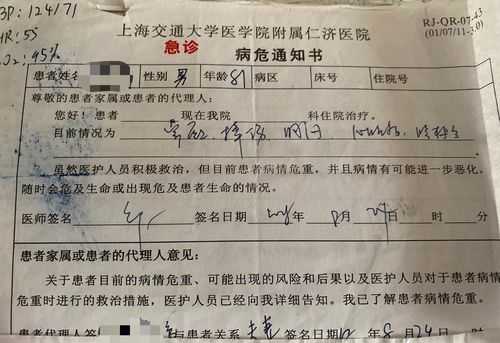 BP: 124/71
HR: 55
O2: 95%
RJ-QR-07-43
(01/07/11-30)
上海交通大学医学院附属仁济医院
急诊
病危通知书
患者姓名 性别 男 年龄 81 病区 床号 住院号
尊敬的患者家属或患者的代理人：
您好！患者 现在我院 科住院治疗。
目前情况为
虽然医护人员积极救治，但目前患者病情危重，并且病情有可能进一步恶化，
随时会危及生命或出现危及患者生命的情况。
医师签名 签名日期 年 8月 日 时 分
患者家属或患者的代理人意见：
关于患者目前的病情危重、可能出现的风险和后果以及医护人员对于患者病情
危重时进行的救治措施，医护人员已经向我详细告知。我已了解患者病情危重。
患者代理人签 与患者关系 签名日期 年 8 月 24 日 时